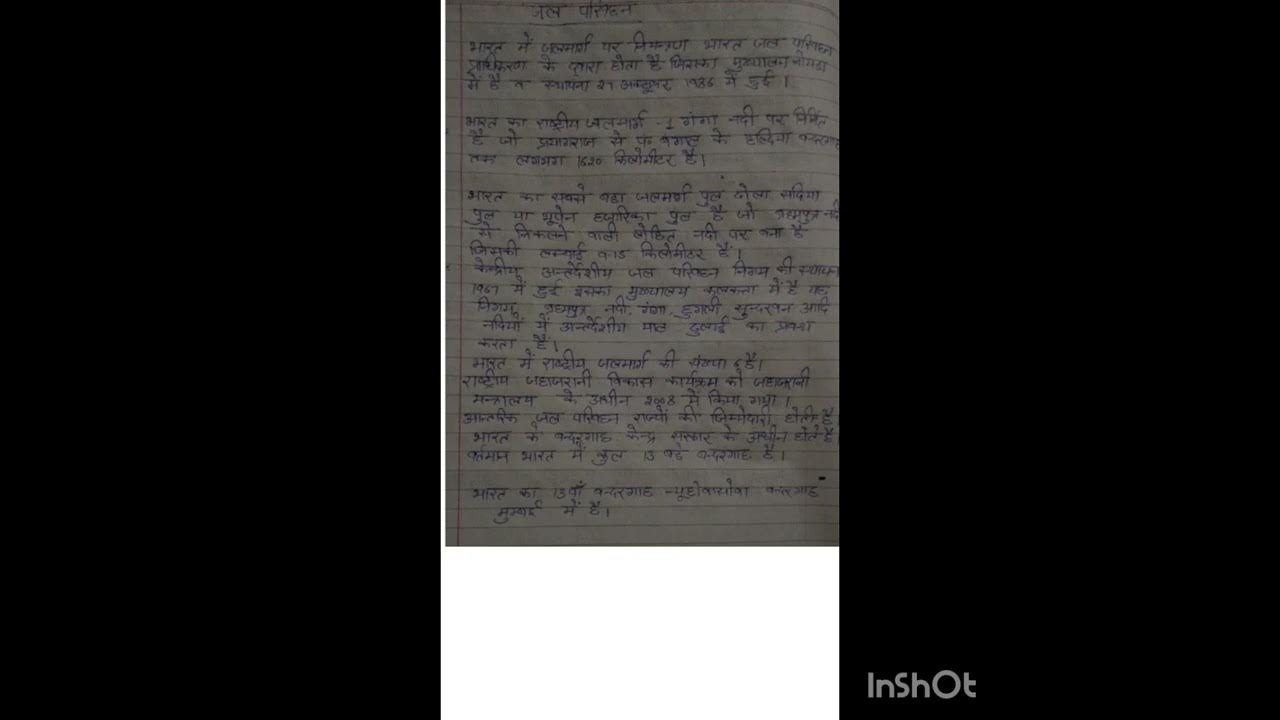 जल परिवहन
भारत में जलमार्ग पर नियन्त्रण भारत जल परिवहन
प्राधिकरण के द्वारा होता है जिसका मुख्यालय नोएडा
में है व स्थापना 27 अक्टूबर 1986 में हुई ।
भारत का राष्ट्रीय जलमार्ग -1 गंगा नदी पर निर्मित
है जो प्रयागराज से प. बंगाल के हल्दिया बन्दरगाह
तक लगभग 1620 किलोमीटर है।
भारत का सबसे बडा जलमार्ग पुल ढोला सदिया
पुल या भूपेन हजारिका पुल है जो ब्रह्मपुत्र नदी
से निकलने वाली लोहित नदी पर बना है
जिसकी लम्बाई 9.15 किलोमीटर है।
केन्द्रीय अन्तर्देशीय जल परिवहन निगम की स्थापना
1967 में हुई इसका मुख्यालय कलकत्ता में है यह
निगम ब्रह्मपुत्र नदी, गंगा, हुगली सुन्दरवन आदि
नदियों में अन्तर्देशीय माल ढुलाई का प्रबन्ध
करता है।
भारत में राष्ट्रीय जलमार्ग की संख्या 6 है।
राष्ट्रीय जहाजरानी विकास कार्यक्रम को जहाजरानी
मन्त्रालय के अधीन 2003 में किया गया ।
आन्तरिक जल परिवहन राज्यों की जिम्मेदारी होती है
भारत के बन्दरगाह केन्द्र सरकार के अधीन होते है
वर्तमान भारत में कुल 13 बडे बन्दरगाह है।
भारत का 13वाँ बन्दरगाह - बन्दरगाह
मुम्बई में है।
InShOt